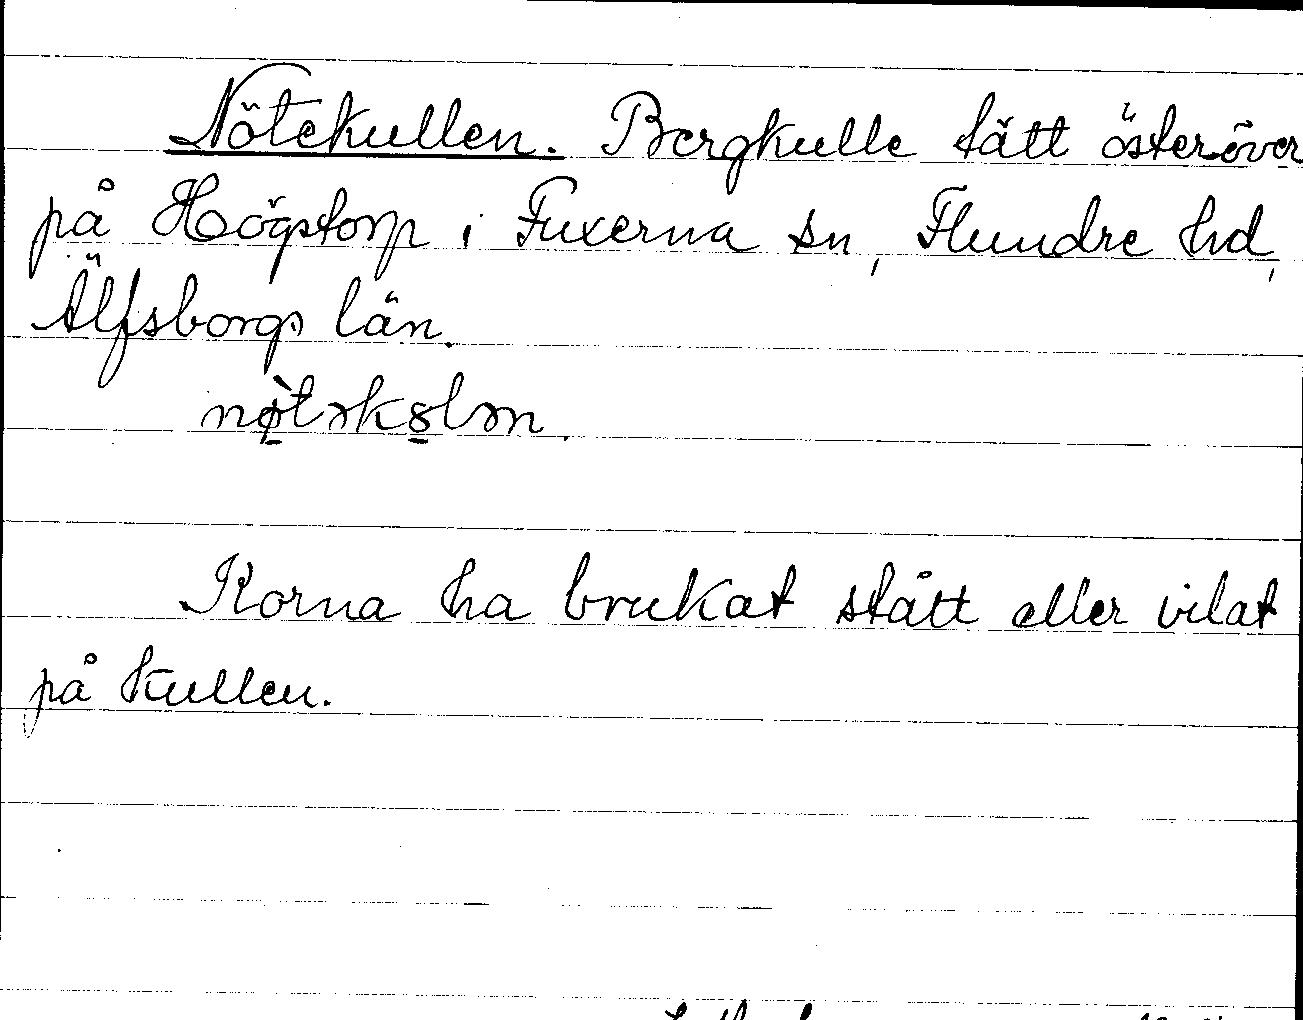 Nötekullen. Bergkulle tätt österöver
på Högstorp i Fuxerna sn, Flundre hd,
Älfsborgs län.
nø̀təkȣlən.
Korna ha brukat stått eller vilat
på kullen.